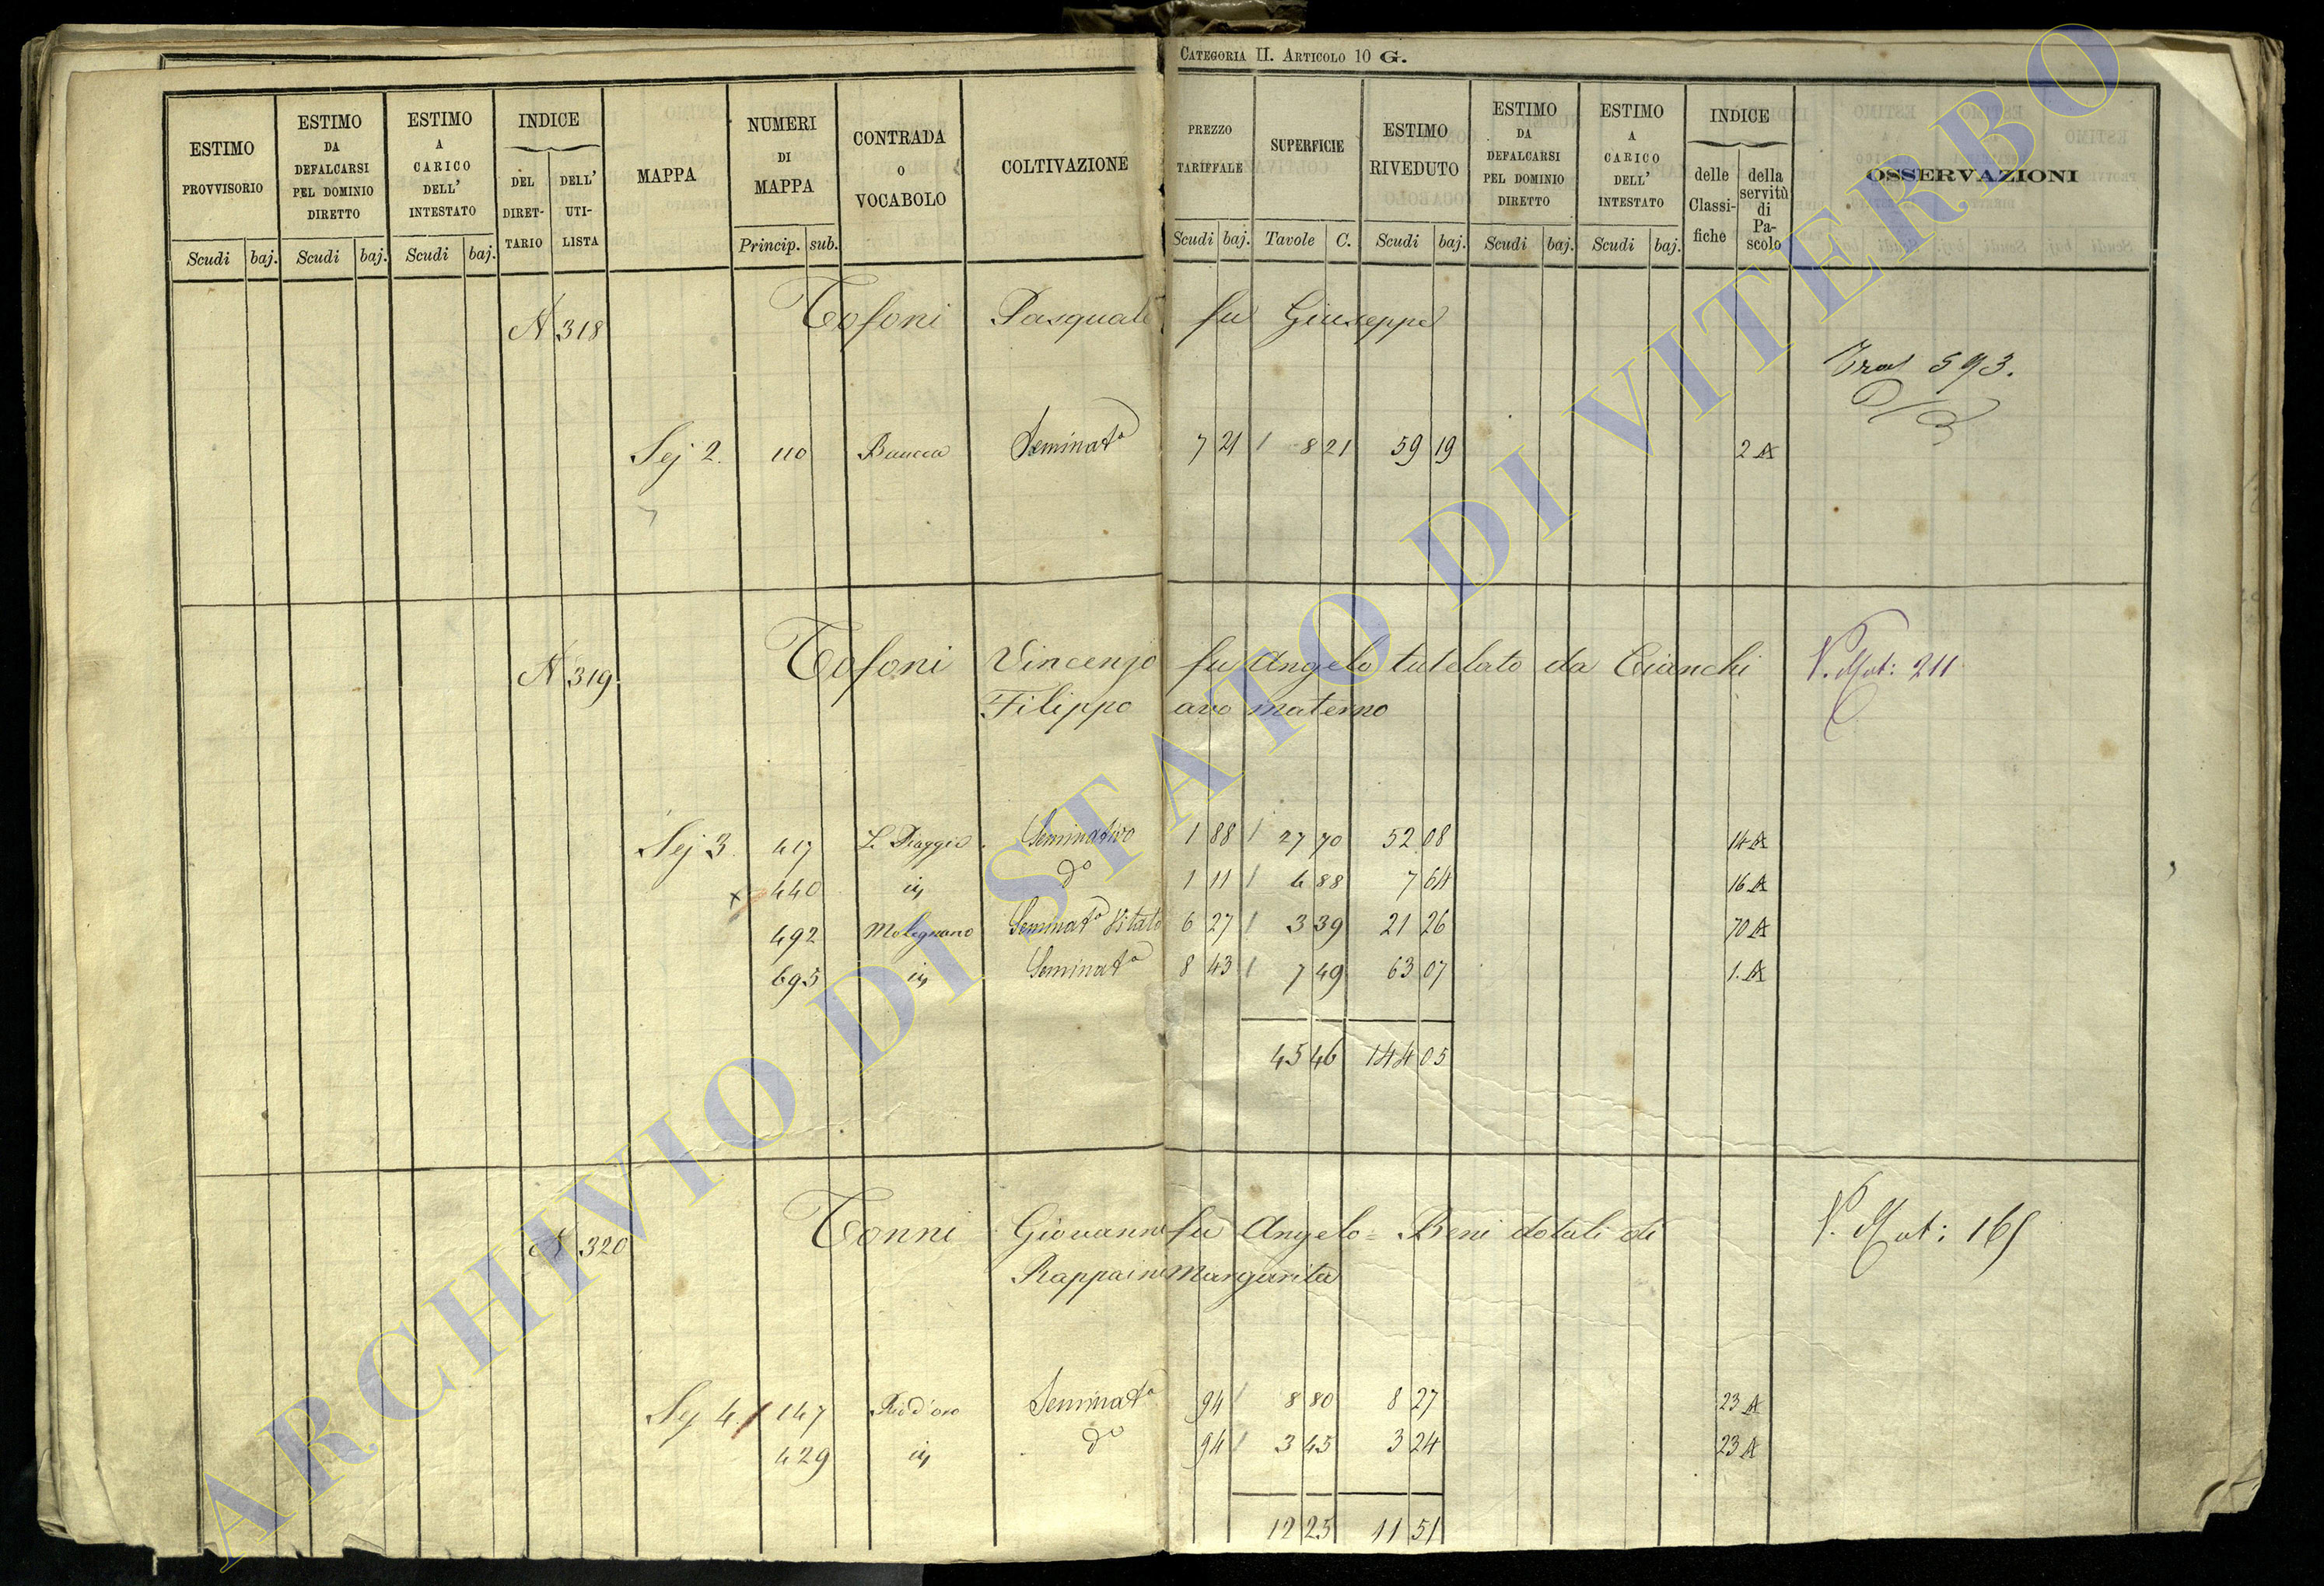 CATEGORIA II. ARTICOLO 10 G.
ESTIMO PROVVISORIO
ESTIMO DA DEFALCARSI PEL DOMINIO DIRETTO
ESTIMO A CARICO DELL' INTESTATO
INDICE
DEL DIRET-TARIO
DELL' UTI-LISTA
MAPPA
NUMERI DI MAPPA
CONTRADA O VOCABOLO
COLTIVAZIONE
PREZZO TARIFFALE
SUPERFICIE
ESTIMO RIVEDUTO
ESTIMO DA DEFALCARSI PEL DOMINIO DIRETTO
ESTIMO A CARICO DELL' INTESTATO
INDICE
delle Classi-fiche
della servitù di Pa-scolo
OSSERVAZIONI
Scudi baj. Scudi baj. Scudi baj. Princip. sub. Scudi baj. Tavole C. Scudi baj. Scudi baj. Scudi baj.
N 318 Tofoni Pasquale fu Giuseppe
593.
Sez 2. 110 Seminat° 7 21 8 21 59 19 2 A
N 319 Tofoni Vincenzo fu Angelo tutelato da Cianchi
Filippo avo materno
V. Mut: 211
Sez 3. 417 Seminativo 1 88 27 70 52 08 14 A
440 d° 1 11 6 88 7 64 16 A
492 Molegnano Seminat° Vitato 6 27 3 39 21 26 70 A
695 Seminat° 8 43 7 49 63 07 1. A
45 46 144 05
N 320 Tonni Giovanni fu Angelo = Beni dotali di
Rappaini Margarita
V. Mut: 165
Sez 4. 147 Rio d'oro Seminat° 94 8 80 8 27 23 A
429 d° 94 3 45 3 24 23 A
12 25 11 51
ARCHIVIO DI STATO DI VITERBO